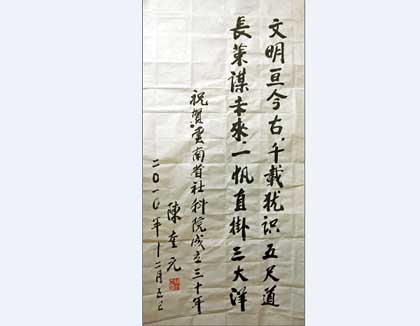 文明亘今古，千载犹识五尺道
長策謀未來，一帆直掛三大洋
祝賀雲南省社科院成立三十年
陳奎元
二〇一〇年十二月五日